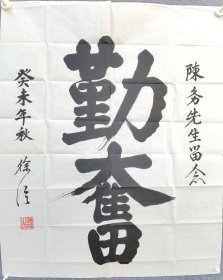 陳务先生留念
勤奮
癸未年秋